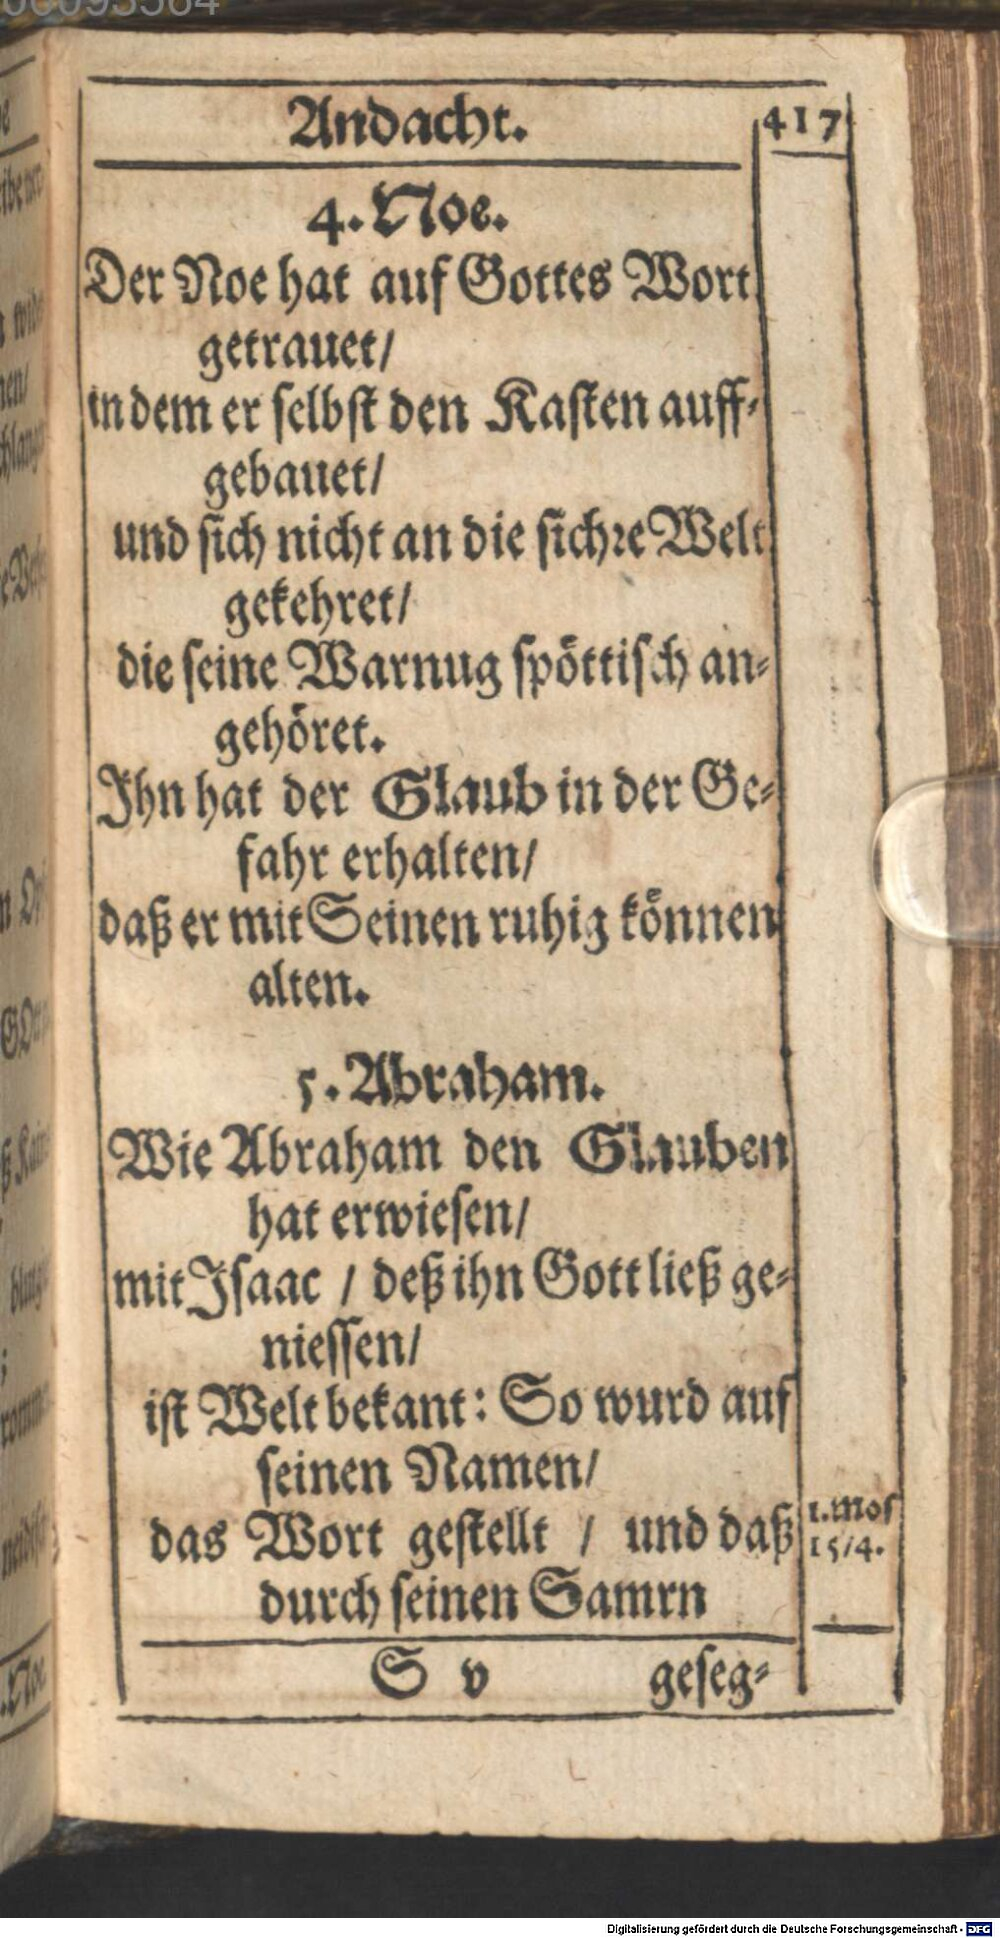 Andacht. 417
4. Noe.
Der Noe hat auf Gottes Wort
getrauet/
in dem er ſelbſt den Kaſten auff⸗
gebauet/
und ſich nicht an die ſichre Welt
gekehret/
die ſeine Warnug ſpöttiſch an⸗
gehöret.
Ihn hat der Glaub in der Ge⸗
fahr erhalten/
daß er mit Seinen ruhig können
alten.
5. Abraham.
Wie Abraham den Glauben
hat erwieſen/
mit Iſaac / deß ihn Gott ließ ge⸗
nieſſen/
iſt Welt bekant: So wurd auf
ſeinen Namen/
das Wort geſtellt / und daß
durch ſeinen Samrn
1. Moſ
15/4.
S v geſeg⸗
Digitalisierung gefördert durch die Deutsche Forschungsgemeinschaft - DFG